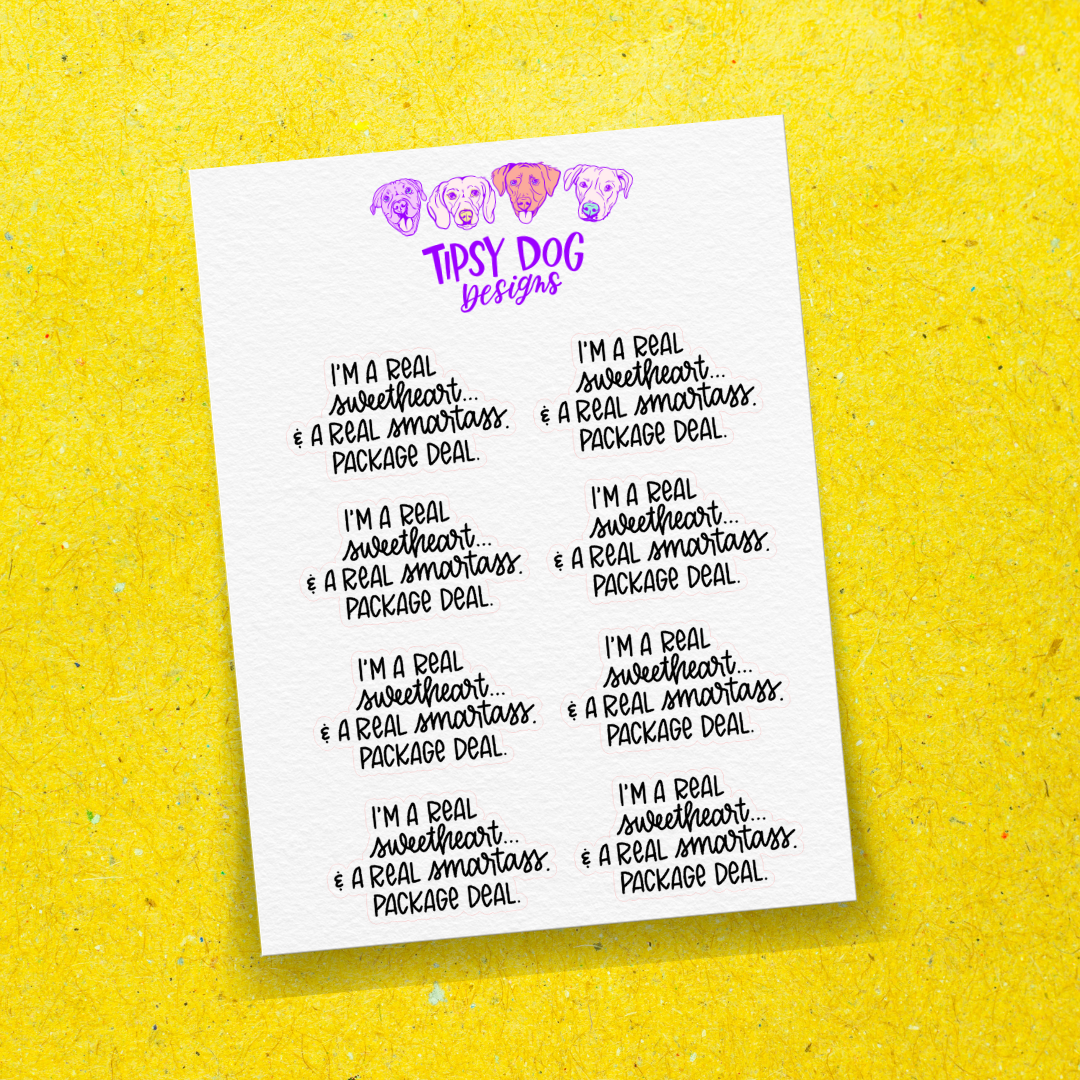 TIPSY DOG
Designs
I'M A REAL
sweetheart...
& A REAL smartass.
PACKAGE DEAL.
I'M A REAL
sweetheart...
& A REAL smartass.
PACKAGE DEAL.
I'M A REAL
sweetheart...
& A REAL smartass.
PACKAGE DEAL.
I'M A REAL
sweetheart...
& A REAL smartass.
PACKAGE DEAL.
I'M A REAL
sweetheart...
& A REAL smartass.
PACKAGE DEAL.
I'M A REAL
sweetheart...
& A REAL smartass.
PACKAGE DEAL.
I'M A REAL
sweetheart...
& A REAL smartass.
PACKAGE DEAL.
I'M A REAL
sweetheart...
& A REAL smartass.
PACKAGE DEAL.